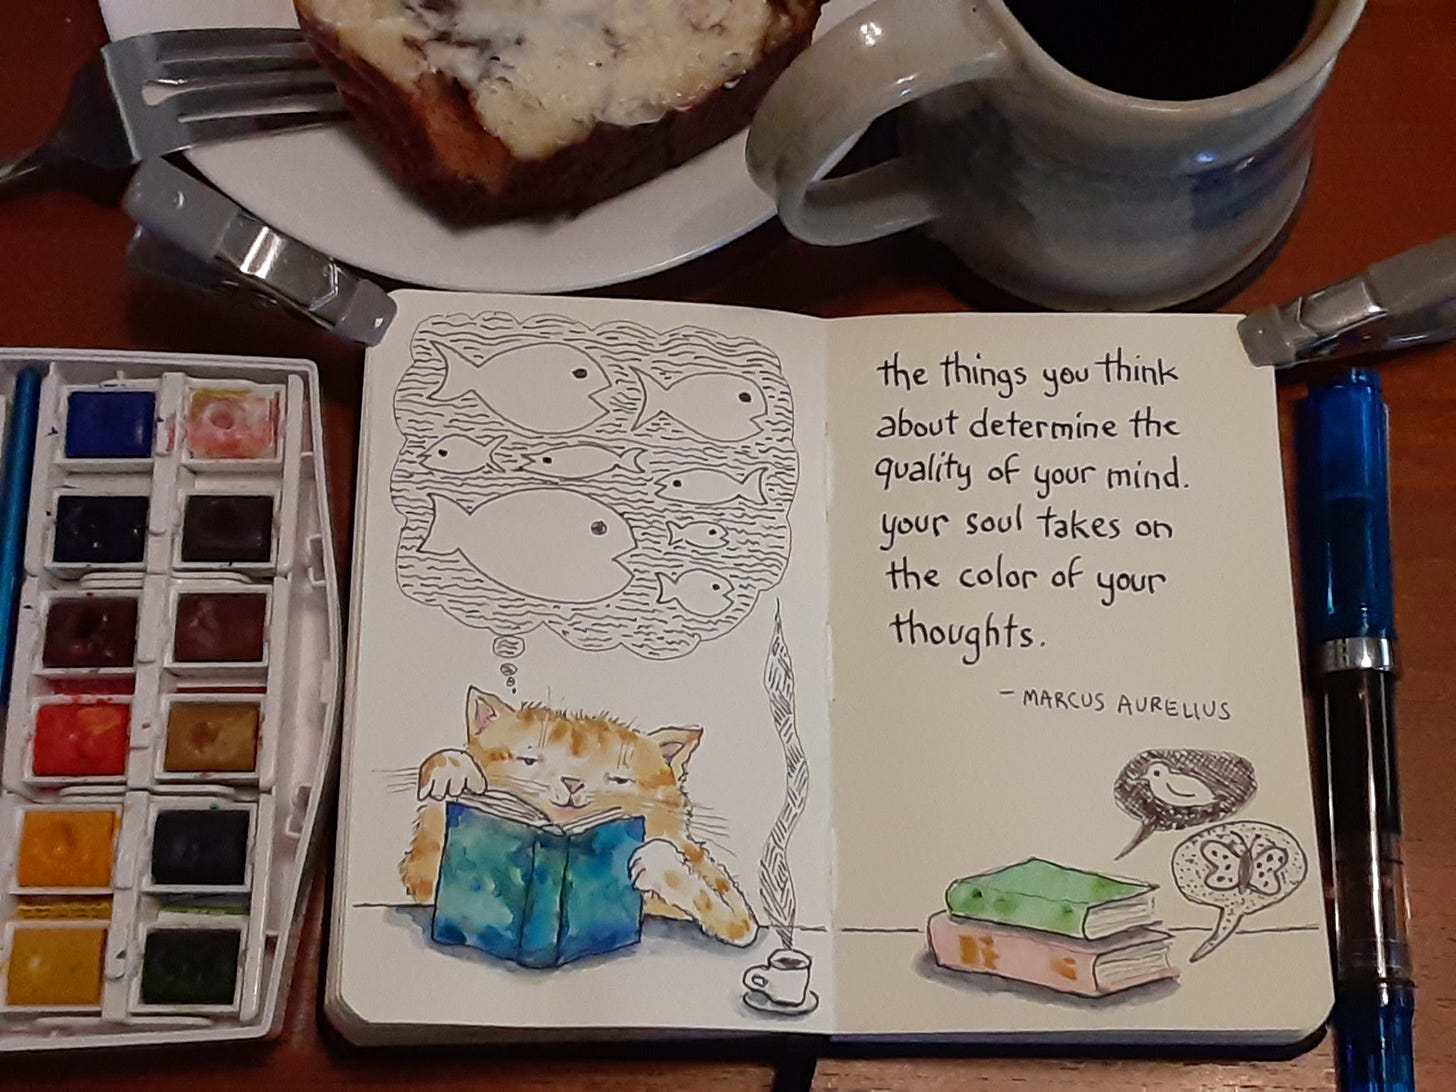 the things you think
about determine the
quality of your mind.
your soul takes on
the color of your
thoughts.
- MARCUS AURELIUS